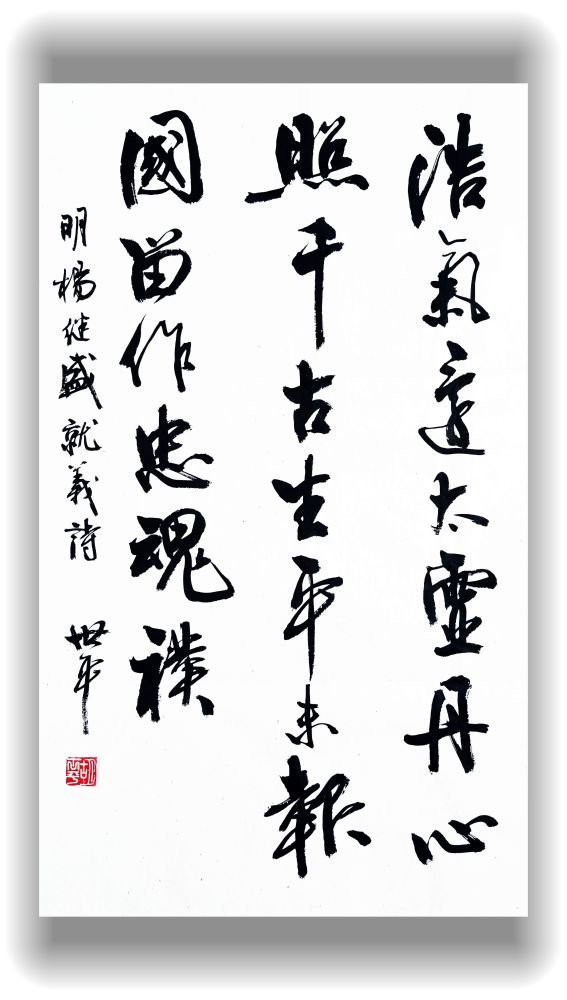 浩氣還太虛丹心
照千古生平未報
國留作忠魂補
明楊继盛就義詩 世平